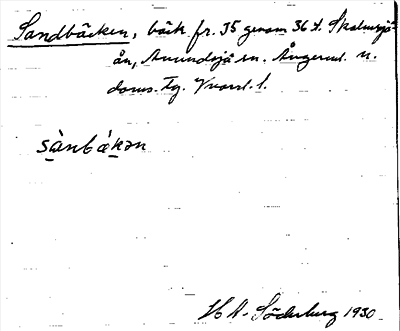 Sandbäcken, bäck fr. 35 genom 36 t. Skalmsjö-
ån, Anundsjö sn. Ångerml. n.
doms. Tg.
sànbákən
H A. Söderberg 1930